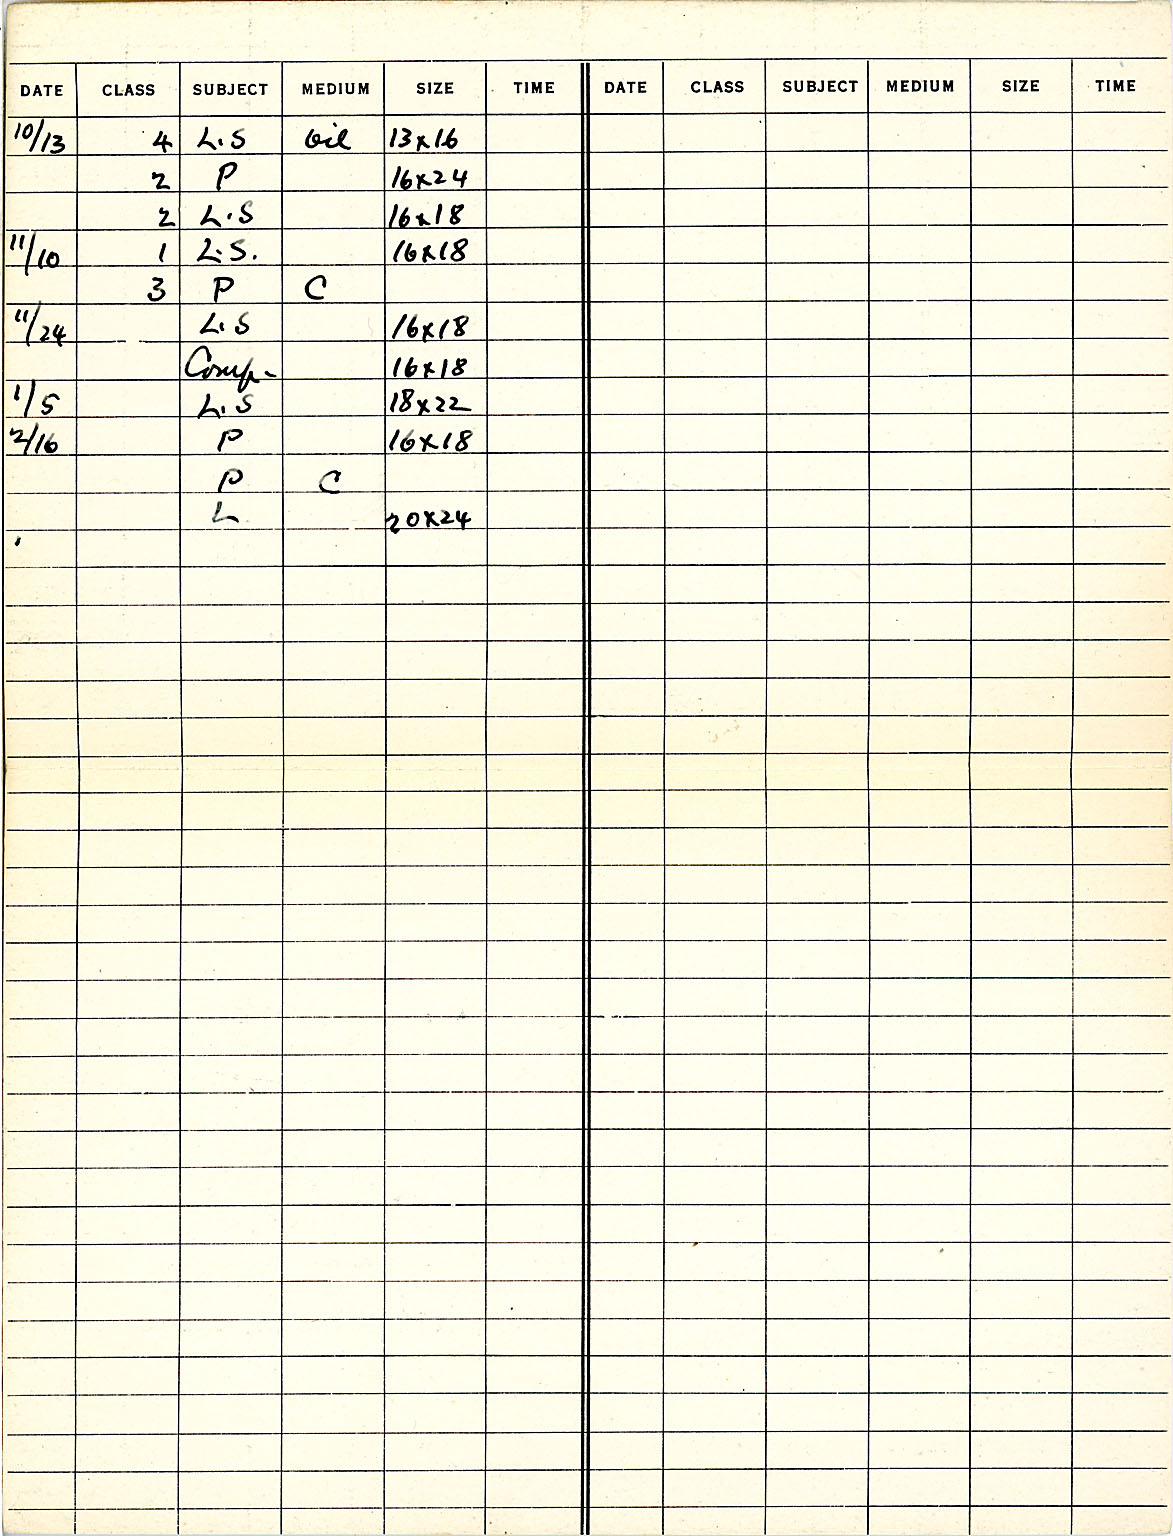 DATE CLASS SUBJECT MEDIUM SIZE TIME DATE CLASS SUBJECT MEDIUM SIZE TIME
10/13 4 L.S Oil 13x16
2 P 16x24
2 L.S 16x18
11/10 1 L.S. 16x18
3 P C
11/24 L.S 16x18
Comp- 16x18
1/5 L.S 18x22
2/16 P 16x18
P C
L 20x24